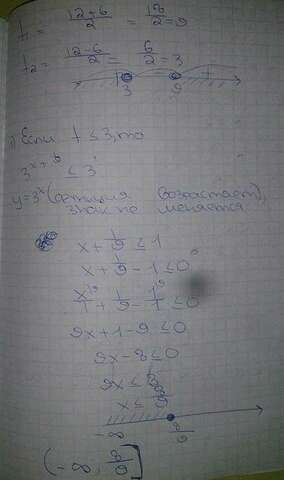 t = \frac{12+6}{2} = \frac{18}{2} = 9
t₂ = \frac{12-6}{2} = \frac{6}{2} = 3
3 9
1) Если t ≤ 3, то
≤ 3
y=3ˣ (функция возрастает),
знак не меняется.
x + \frac{1}{9} ≤ 1
x + \frac{1}{9} - 1 ≤ 0
\frac{x}{1} + \frac{1}{9} - \frac{1}{1} ≤ 0
9x + 1 - 9 ≤ 0
9x - 8 ≤ 0
9x ≤ 8
x ≤ \frac{8}{9}
-∞ \frac{8}{9}
(-∞; \frac{8}{9}]